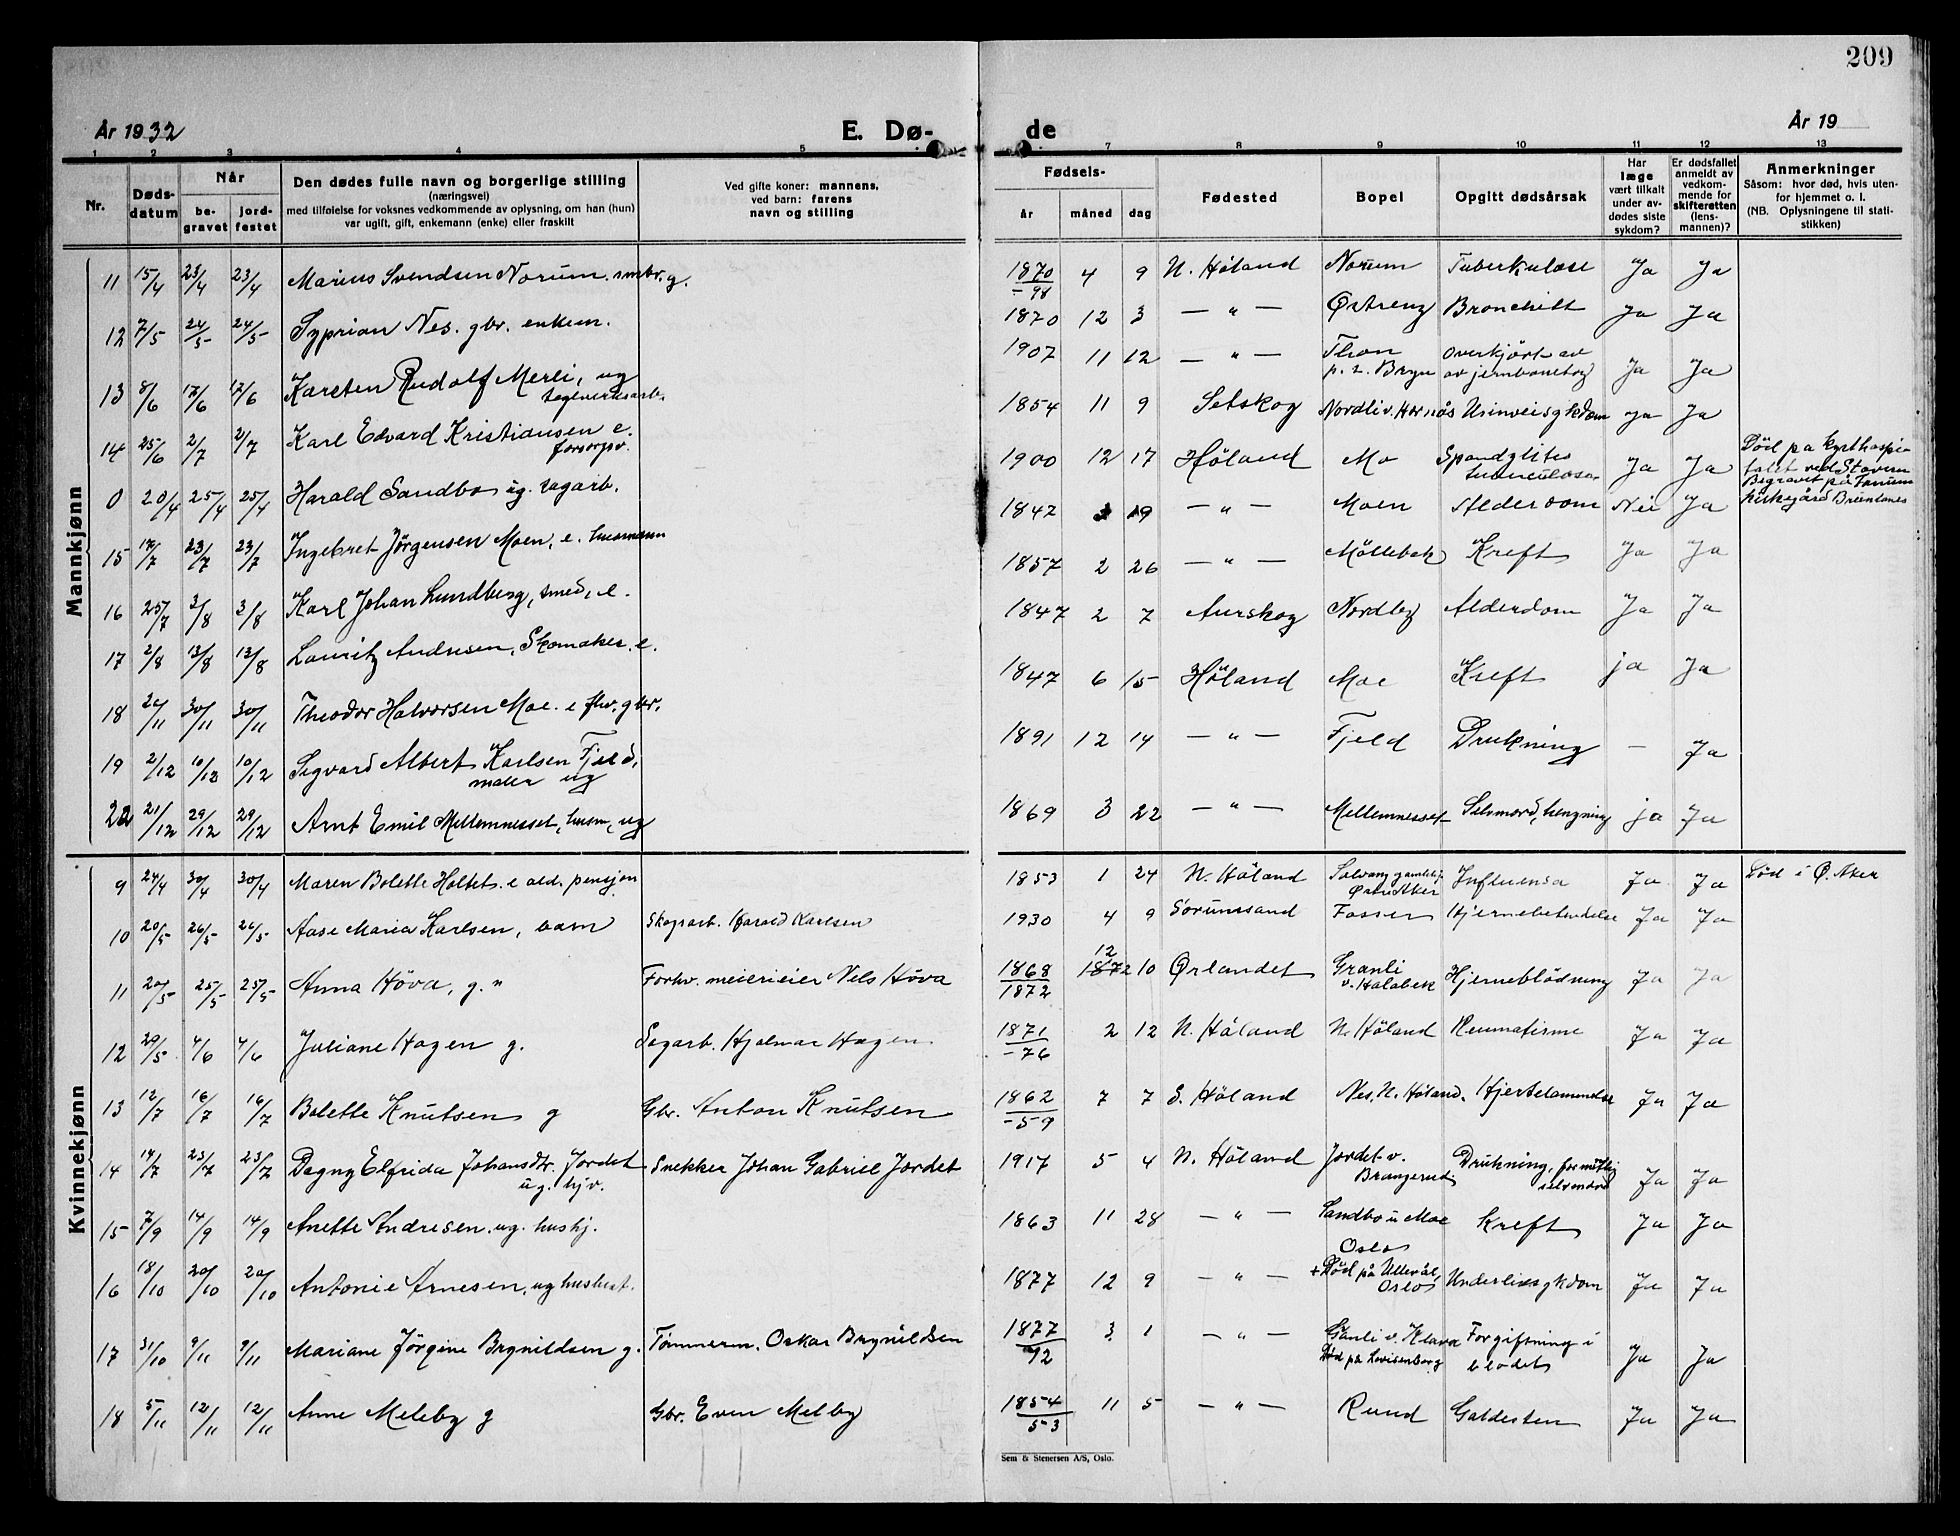 209
År 1932
E. Dø-
de
År 19
1 2 3 4 5
7 8 9 10 11 12 13
Nr.
Dødsdatum
Når
be-
gravet
jord-
festet
Den dødes fulle navn og borgerlige stilling
(næringsvei)
med tilføielse for voksnes vedkommende av oplysning, om han (hun)
var ugift, gift, enkemann (enke) eller fraskilt
Ved gifte koner: mannens,
ved barn: farens
navn og stilling
Fødsels-
år måned dag
Fødested
Bopel
Opgitt dødsårsak
Har
læge
vært tilkalt
under av-
dødes siste
sykdom?
Er dødsfallet
anmeldt av
vedkom-
mende for
skifteretten
(lens-
mannen)?
Anmerkninger
Såsom: hvor død, hvis uten-
for hjemmet o. l.
(NB. Oplysningene til stati-
stikken)
Mannkjønn
11 15/4 23/4 23/4 Marius Svendsen Norum. smbr. g. 1870/-98 4 9 N. Höland Norum Tuberkulose Ja Ja
12 7/5 24/5 24/5 Syprian Nes. gbr. enkem. 1870 12 3 — " — Østreng Bronchitt Ja Ja
13 8/6 12/6 12/6 Karsten Rudolf Merli, ug 1907 11 12 — " — Thon overkjört av
teglverksarb. p. t. Bryn av jernbanetog Ja Ja
14 25/6 2/7 2/7 Karl Edvard Kristiansen e. 1854 11 9 Setskog Nordli v. Hornås Urinveisykdom Ja Ja
forsorgsv.
0 20/4 25/4 25/4 Harald Sandbo ug. sagarb. 1900 12 17 Höland Mo Spondylites
tuberculosa Ja Ja Död på kysthospi-
talet ved Stavern
Begravet på Tanum
kirkegård Brunlanes
15 17/7 23/7 23/7 Ingebret Jörgensen Moen, e. husmann 1842 19 — " — Moen Alderdom Nei Ja
16 25/7 3/8 3/8 Karl Johan Lundberg, smed, e. 1857 2 26 — " — Möllebek Kreft Ja Ja
17 2/8 13/8 13/8 Lauritz Andresen, Skomaker. e. 1847 2 7 Aurskog Nordby Alderdom Ja Ja
18 24/11 30/11 30/11 Theodor Halvorsen Moe. e fhv. gbr. 1847 6 15 Höland Moe Kreft ja Ja
19 2/12 10/12 10/12 Sigvard Albert Karlsen Fjeld, 1891 12 14 — " — Fjeld Drukning – Ja
maler ug
22 21/12 29/12 29/12 Arnt Emil Mellemnesset, husm, ug 1869 3 22 — " — Mellemnesset Selvmord, hengning ja Ja
Kvinnekjønn
9 24/4 30/4 30/4 Maren Bolette Holtet. e ald. pensjon 1853 1 24 N. Höland Solvang gamlehj.
Østre Aker Influensa Ja Ja Död i Ö. Aker
10 20/5 26/5 26/5 Aase Maria Karlsen, barn Skogsarb. Harald Karlsen 1930 4 9 Sörumsand Fosser Hjernebetendelse Ja Ja
11 20/5 25/5 25/5 Anna Höva, g. " Forhv. meierieier Nels Höva 1868/1872 12 1872 10 Ørlandet Granli
v. Holabek Hjerneblödning Ja Ja
12 29/5 4/6 4/6 Juliane Hagen g. Sagarb. Hjalmar Hagen 1871/-76 2 12 N. Höland N. Höland Reumatisme Ja Ja
13 12/7 16/7 16/7 Bolette Knutsen g Gbr. Anton Knutsen 1862/-59 7 7 S. Höland Nes, N. Höland. Hjertelammelse Ja Ja
14 14/7 23/7 23/7 Dagny Elfrida Johansdtr. Jordet Snekker Johan Gabriel Jordet 1917 5 4 N. Höland Jordet v.
ug. hjv. Brangerud Drukning, formodtlig
selvmord Ja Ja
15 7/9 14/9 14/9 Anette Andresen. ug. hushj. 1863 11 28 — " — Sandbo u Moe Kreft Ja Ja
16 18/10 20/10 20/10 Antonie Arnesen, ug husbest. 1877 12 9 — " — Oslo
+Död på Ullevål,
Oslo Underlivsykdom Ja Ja
17 31/10 9/11 9/11 Mariane Jörgine Brynildsen g. Tömmerm. Oskar Brynildsen 1877/92 3 1 — " — v. Klava
Död på Lovisenberg Forgiftning i
blodet Ja Ja
18 5/11 12/11 12/11 Anne Meleby g Gbr. Even Melby 1854/53 11 5 — " — Rund Galdesten Ja Ja
Sem & Stenersen A/S, Oslo.